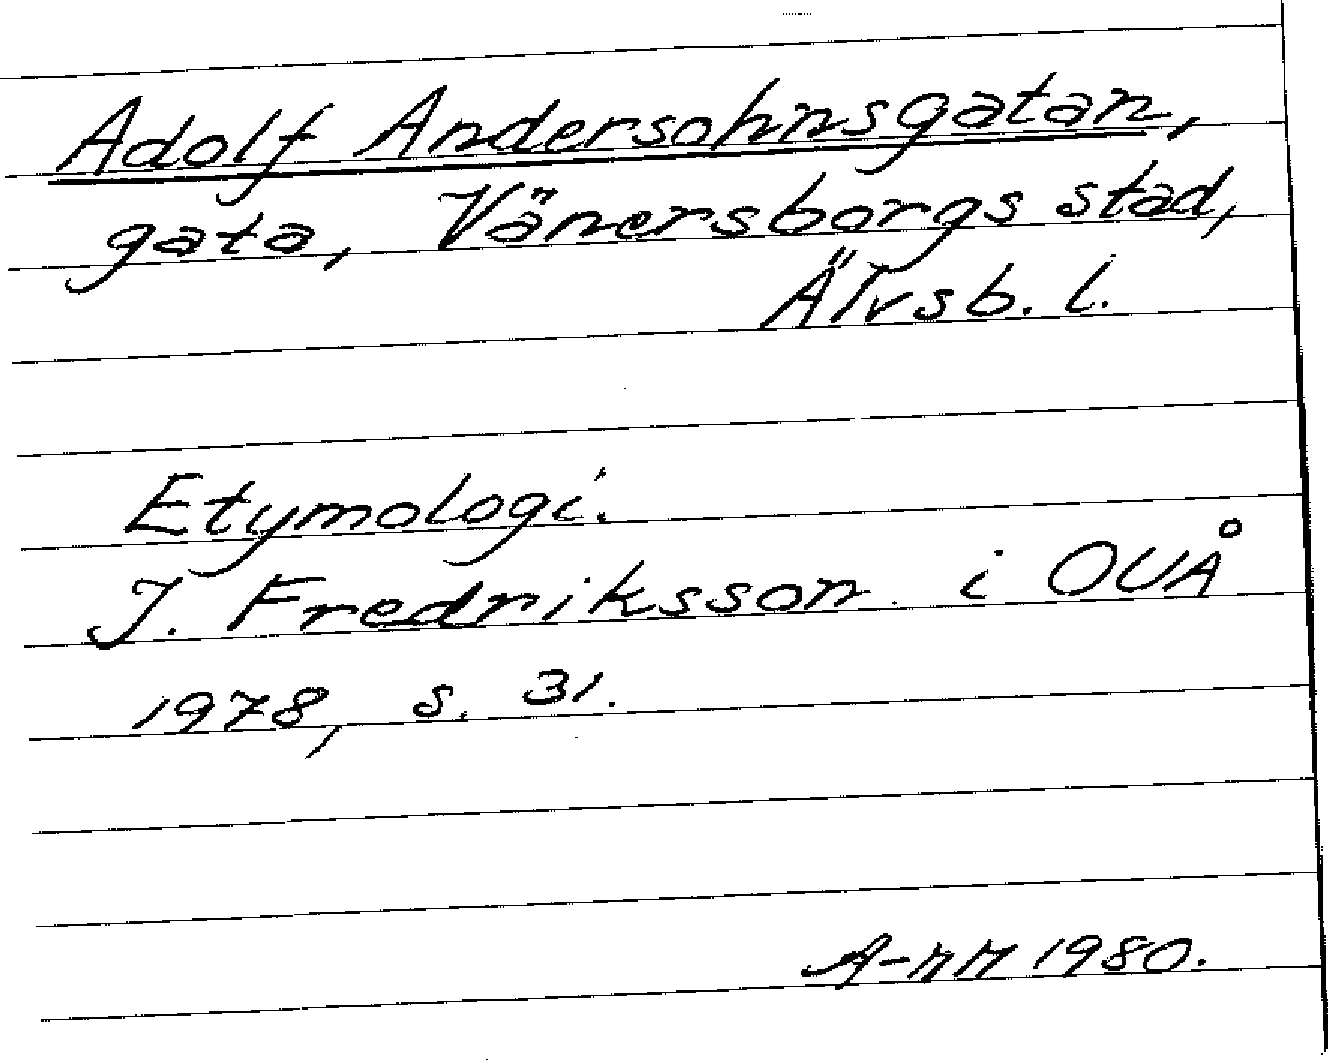 Adolf Andersohnsgatan,
gata, Vänersborgs stad,
Älvsb. l.
Etymologi.
J. Fredriksson i OUÅ
1978, s. 31.
A-MM 1980.